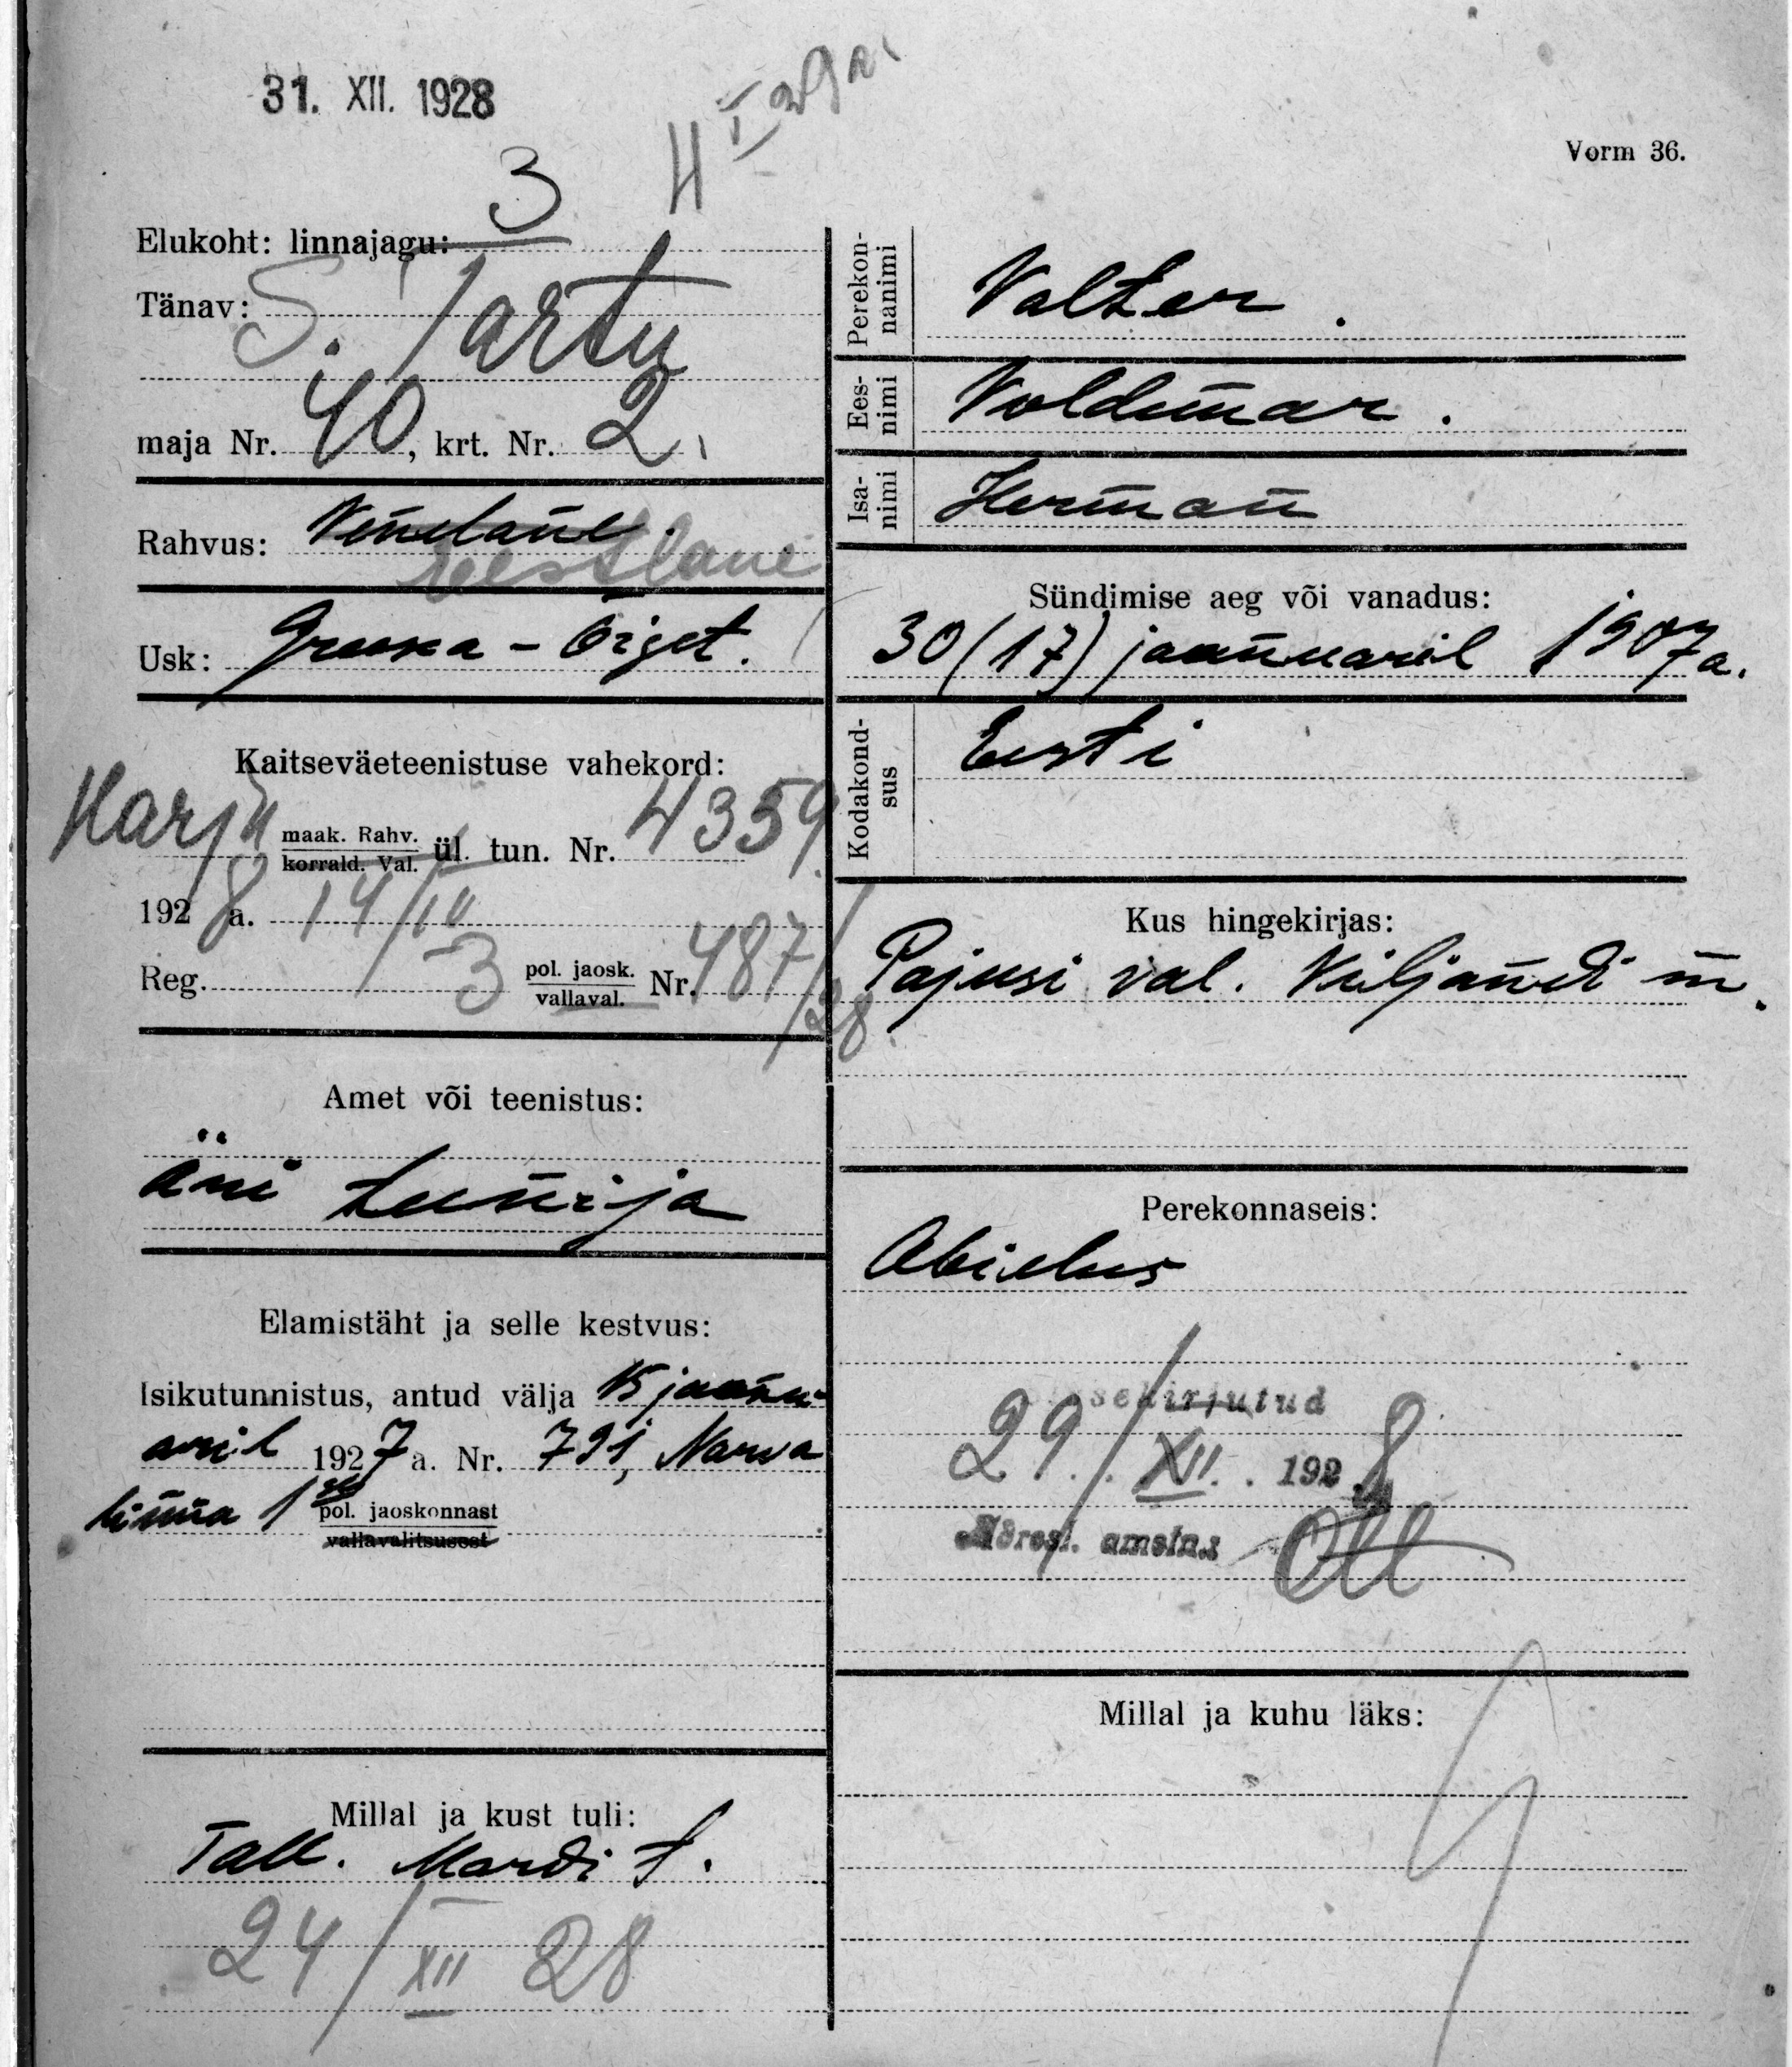 31. XII. 1928
4 I 29 a.
Vorm 36.
Elukoht: linnajagu: 3
Tänav: S. Tartu
maja Nr. 40, krt. Nr. 2.
Rahvus: Venelane.
eestlane
Usk: Greeka-õiget.
Kaitseväeteenistuse vahekord:
Harju maak. Rahv. korrald. Val. ül. tun. Nr. 4359
1928 a. 14/IV
Reg. 3 pol. jaosk. vallaval. Nr. 487/28.
Amet või teenistus:
äri teenija
Elamistäht ja selle kestvus:
Isikutunnistus, antud välja 15 jaanu-
aril 1927 a. Nr. 791, Narva
linna 1 pol. jaoskonnast
vallavalitsusest
Millal ja kust tuli:
Tall. Mardi t.
24/XII 28
Perekon-
nanimi
Valter.
Ees-
nimi
Voldemar.
Isa-
nimi
Herman
Sündimise aeg või vanadus:
30 (17) jaanuaril 1907 a.
Kodakond-
sus
Eesti
Kus hingekirjas:
Pajusi val. Viljandi m.
Perekonnaseis:
Abielus
Sissekirjutud
29/XII. 1928
Adresl. ametn. Ott
Millal ja kuhu läks: